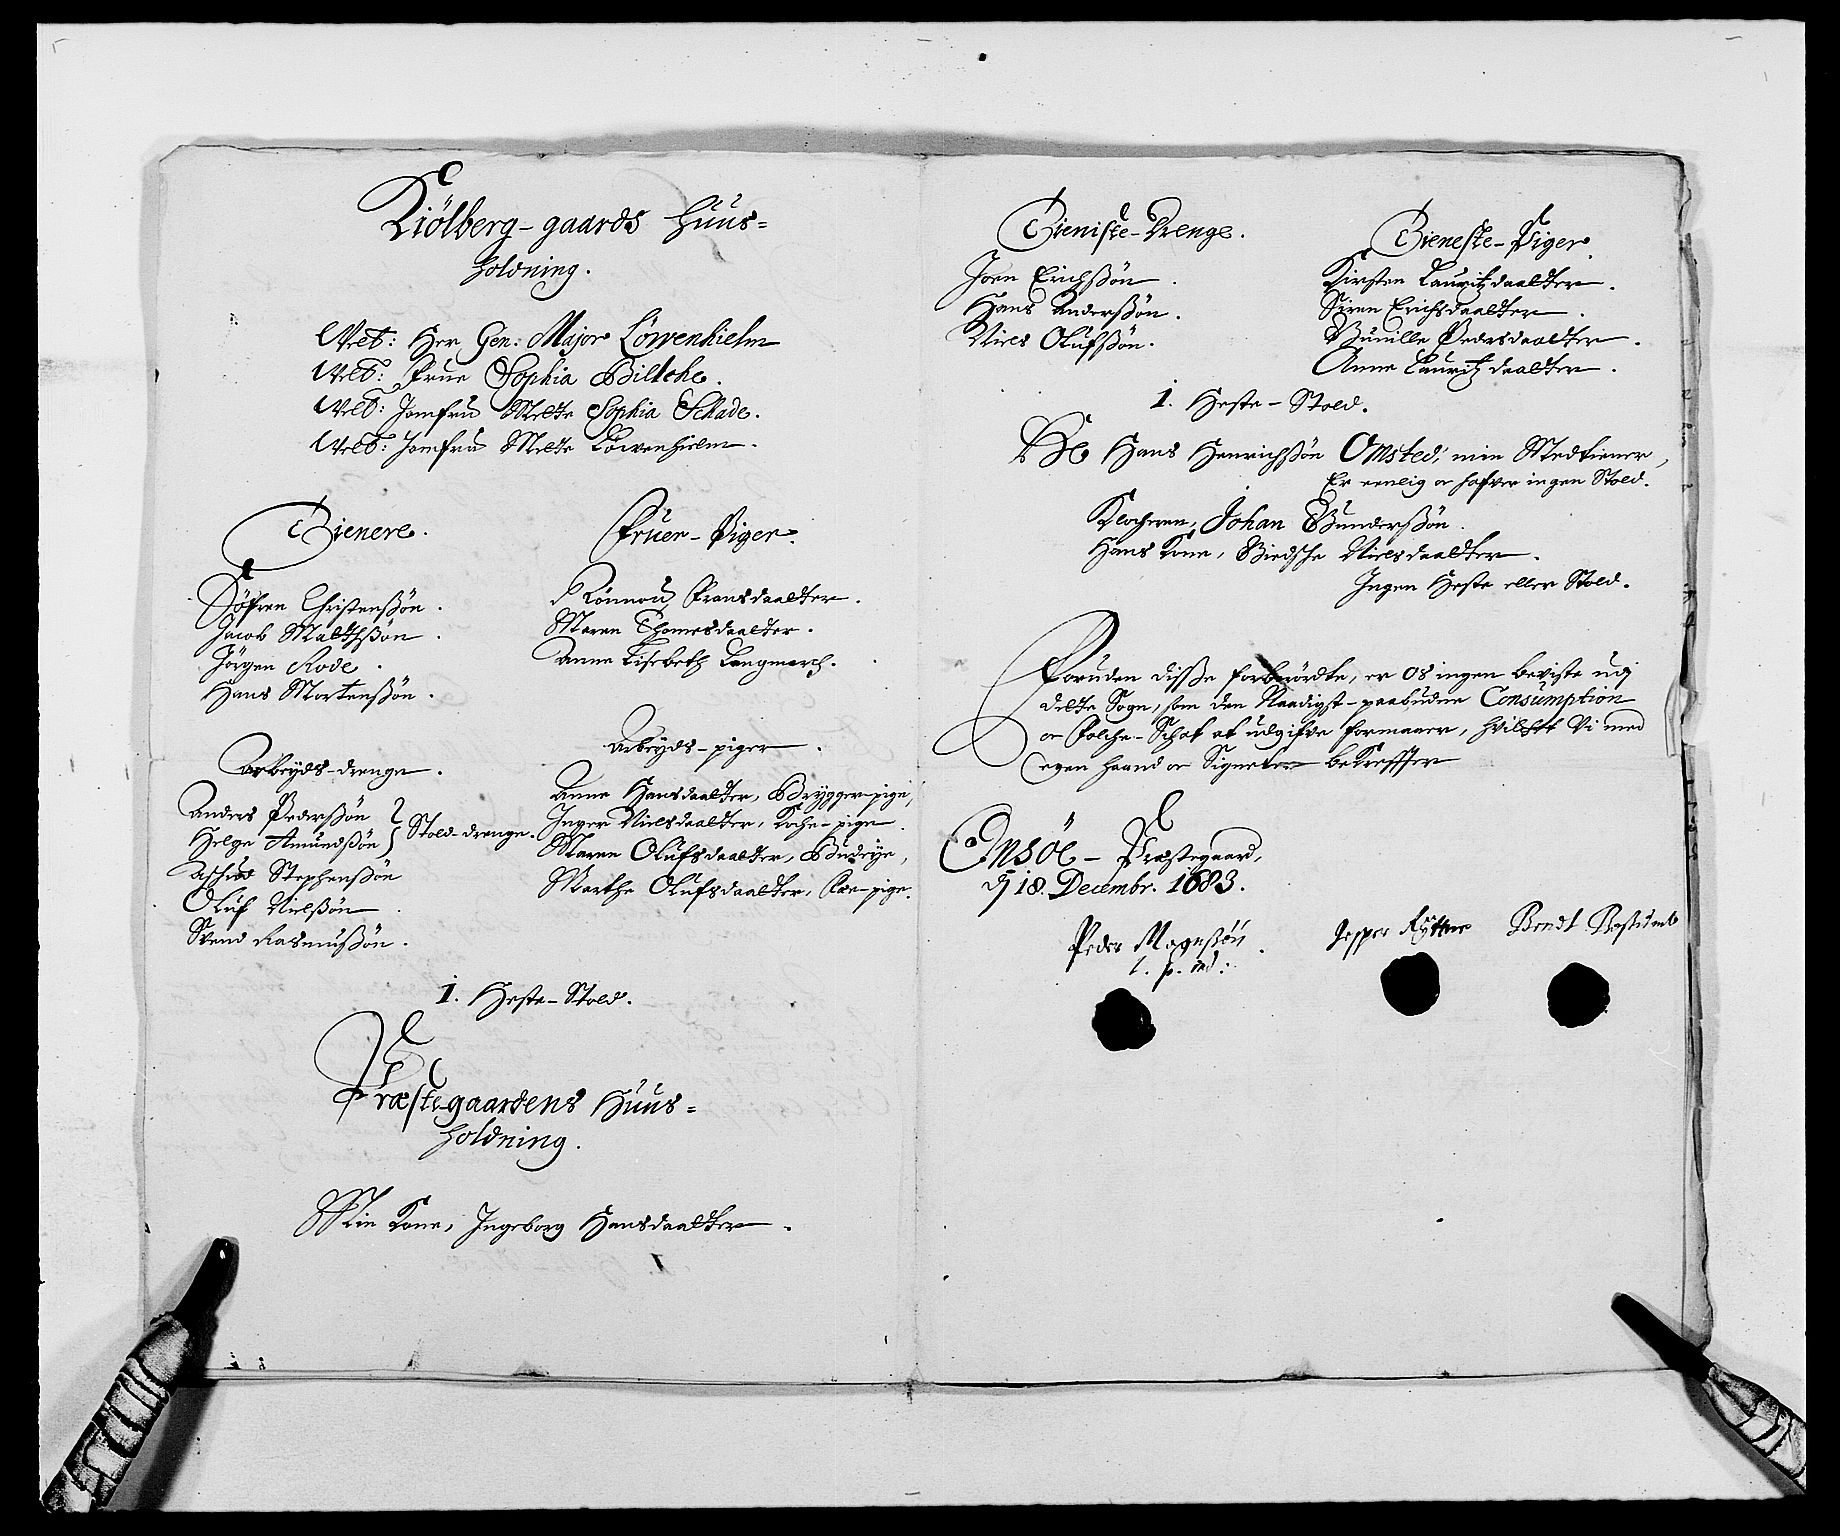 Kiölberg-gaards Huus=
holdning.
Velb: Her Gen: Major Löwenhielm
Velb: Frue Sophia Biltche.
Velb: Jomfru Mette Sophia Schade.
Velb: Jomfru Mette Löwenhielm.
Tienere.
Söfren Christensßön.
Jacob Malthsßön.
Jörgen Rode.
Hans Mortensßön.
Fruer-Piger.
Rönnou Fransdaatter.
Maren Thomesdaatter.
Anne Lisebeth Langmarch.
Arbeyds-drenge.
Anders Pedersßön
Helge Amundsßön } Stold-drenge.
Stephensßön
Oluf Nielsßön.
Svend Rasmusßön.
Arbeyds-piger.
Anne Hansdaatter, Brygger-pige,
Inger Nielsdaatter, Koche-pige.
Maren Olufsdaatter, Budeye,
Marthe Olufsdaatter, Fæ-pige.
1. Heste-Stold.
Præstegaardens Huus=
holdning.
Min Kone, Ingeborg Hansdaatter.
Tieniste-Drenge.
Joen Erichsßön.
Hans Andersßön.
Niels Olufsßön.
Tieneste-Piger.
Kirsten Lauritzdaatter.
Siren Erichsdaatter.
Gunille Pedersdaatter.
Anne Lauritzdaatter.
1. Heste-Stold.
Hr Hans Henrichsßön Omsted, min Medtiener,
Er eenlig oc hafver ingen Stold.
Klocheren, Johan Gundersßön.
Hans Kone, Giedsche Nielsdaatter.
Ingen Heste eller Stold.
Foruden disße forberördte, er os ingen beviste udj
dette Sogn, som den Naadigst-paabudne Consumption
oc Folche-Schat at udgifve formaaer, hvilchet Vi med
egen haand oc Signeter bekreffter
Onsöe-Præstegaard,
dj 18. Decembr. 1683.
Peder Magnsßön
Jesper
Bendt